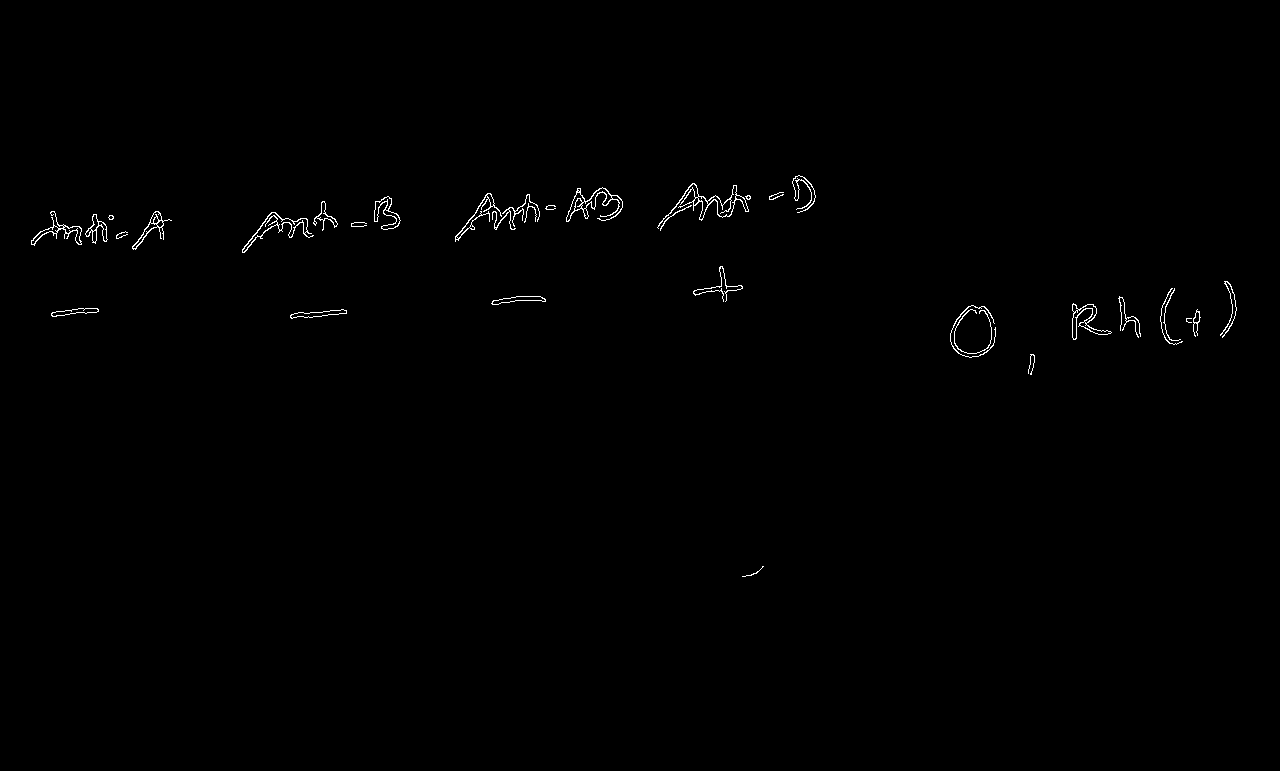 Anti-A Anti-B Anti-AB Anti-D
— — — +
O, Rh (+)